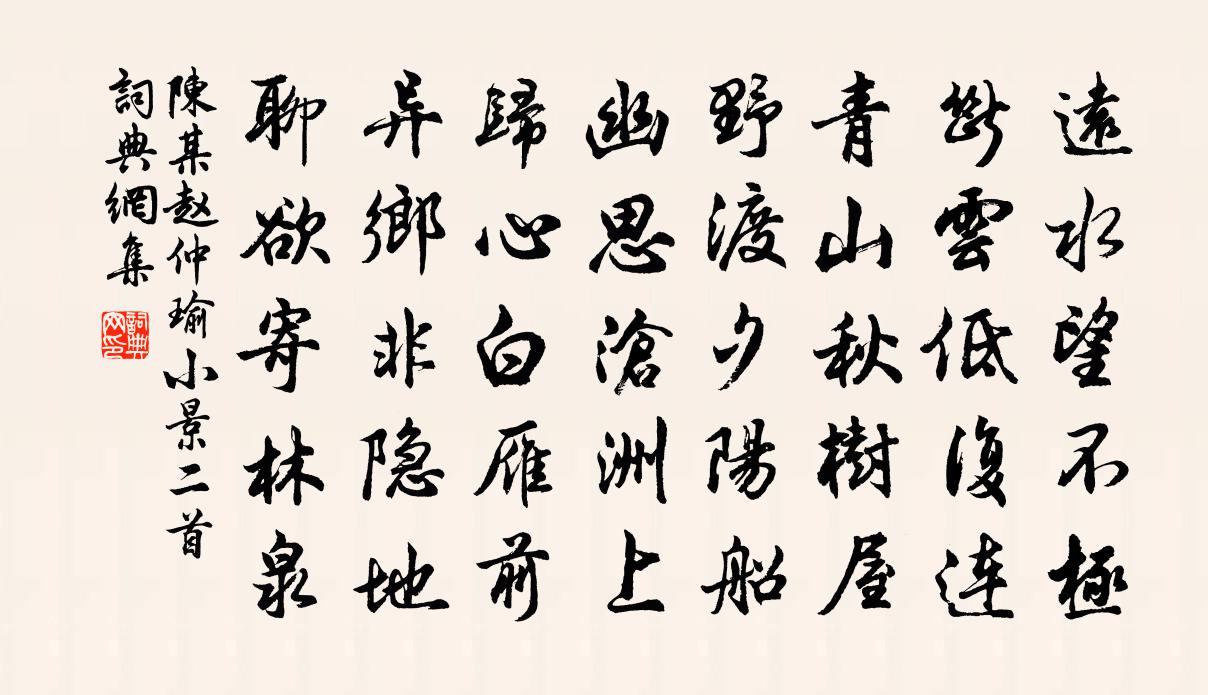 遠水望不極
斷雲低復連
青山秋樹屋
野渡夕陽船
幽思滄洲上
歸心白雁前
异鄉非隐地
聊欲寄林泉
陳某赵仲瑜小景二首
詞典網集
詞典网印